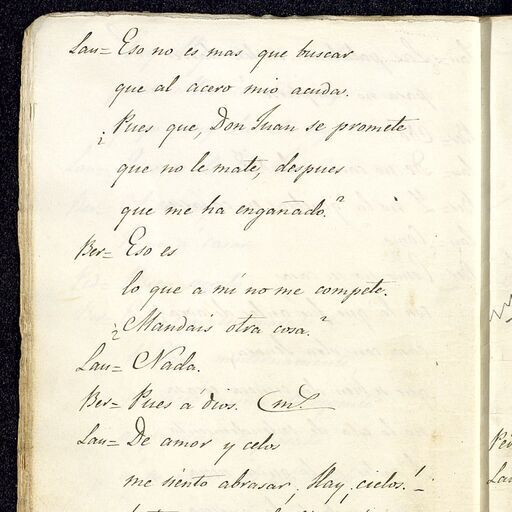 Lau= Eso no es mas que buscar
que al acero mio acudas.
¿Pues que, Don Juan se promete
que no le mate, despues
que me ha engañado?
Ber= Eso es
lo que a mi no me compete.
¿Mandais otra cosa?
Lau= Nada.
Ber= Pues á dios.
Lau= De amor y celos
me siento abrasar. ¡Hay, cielos!
Lau